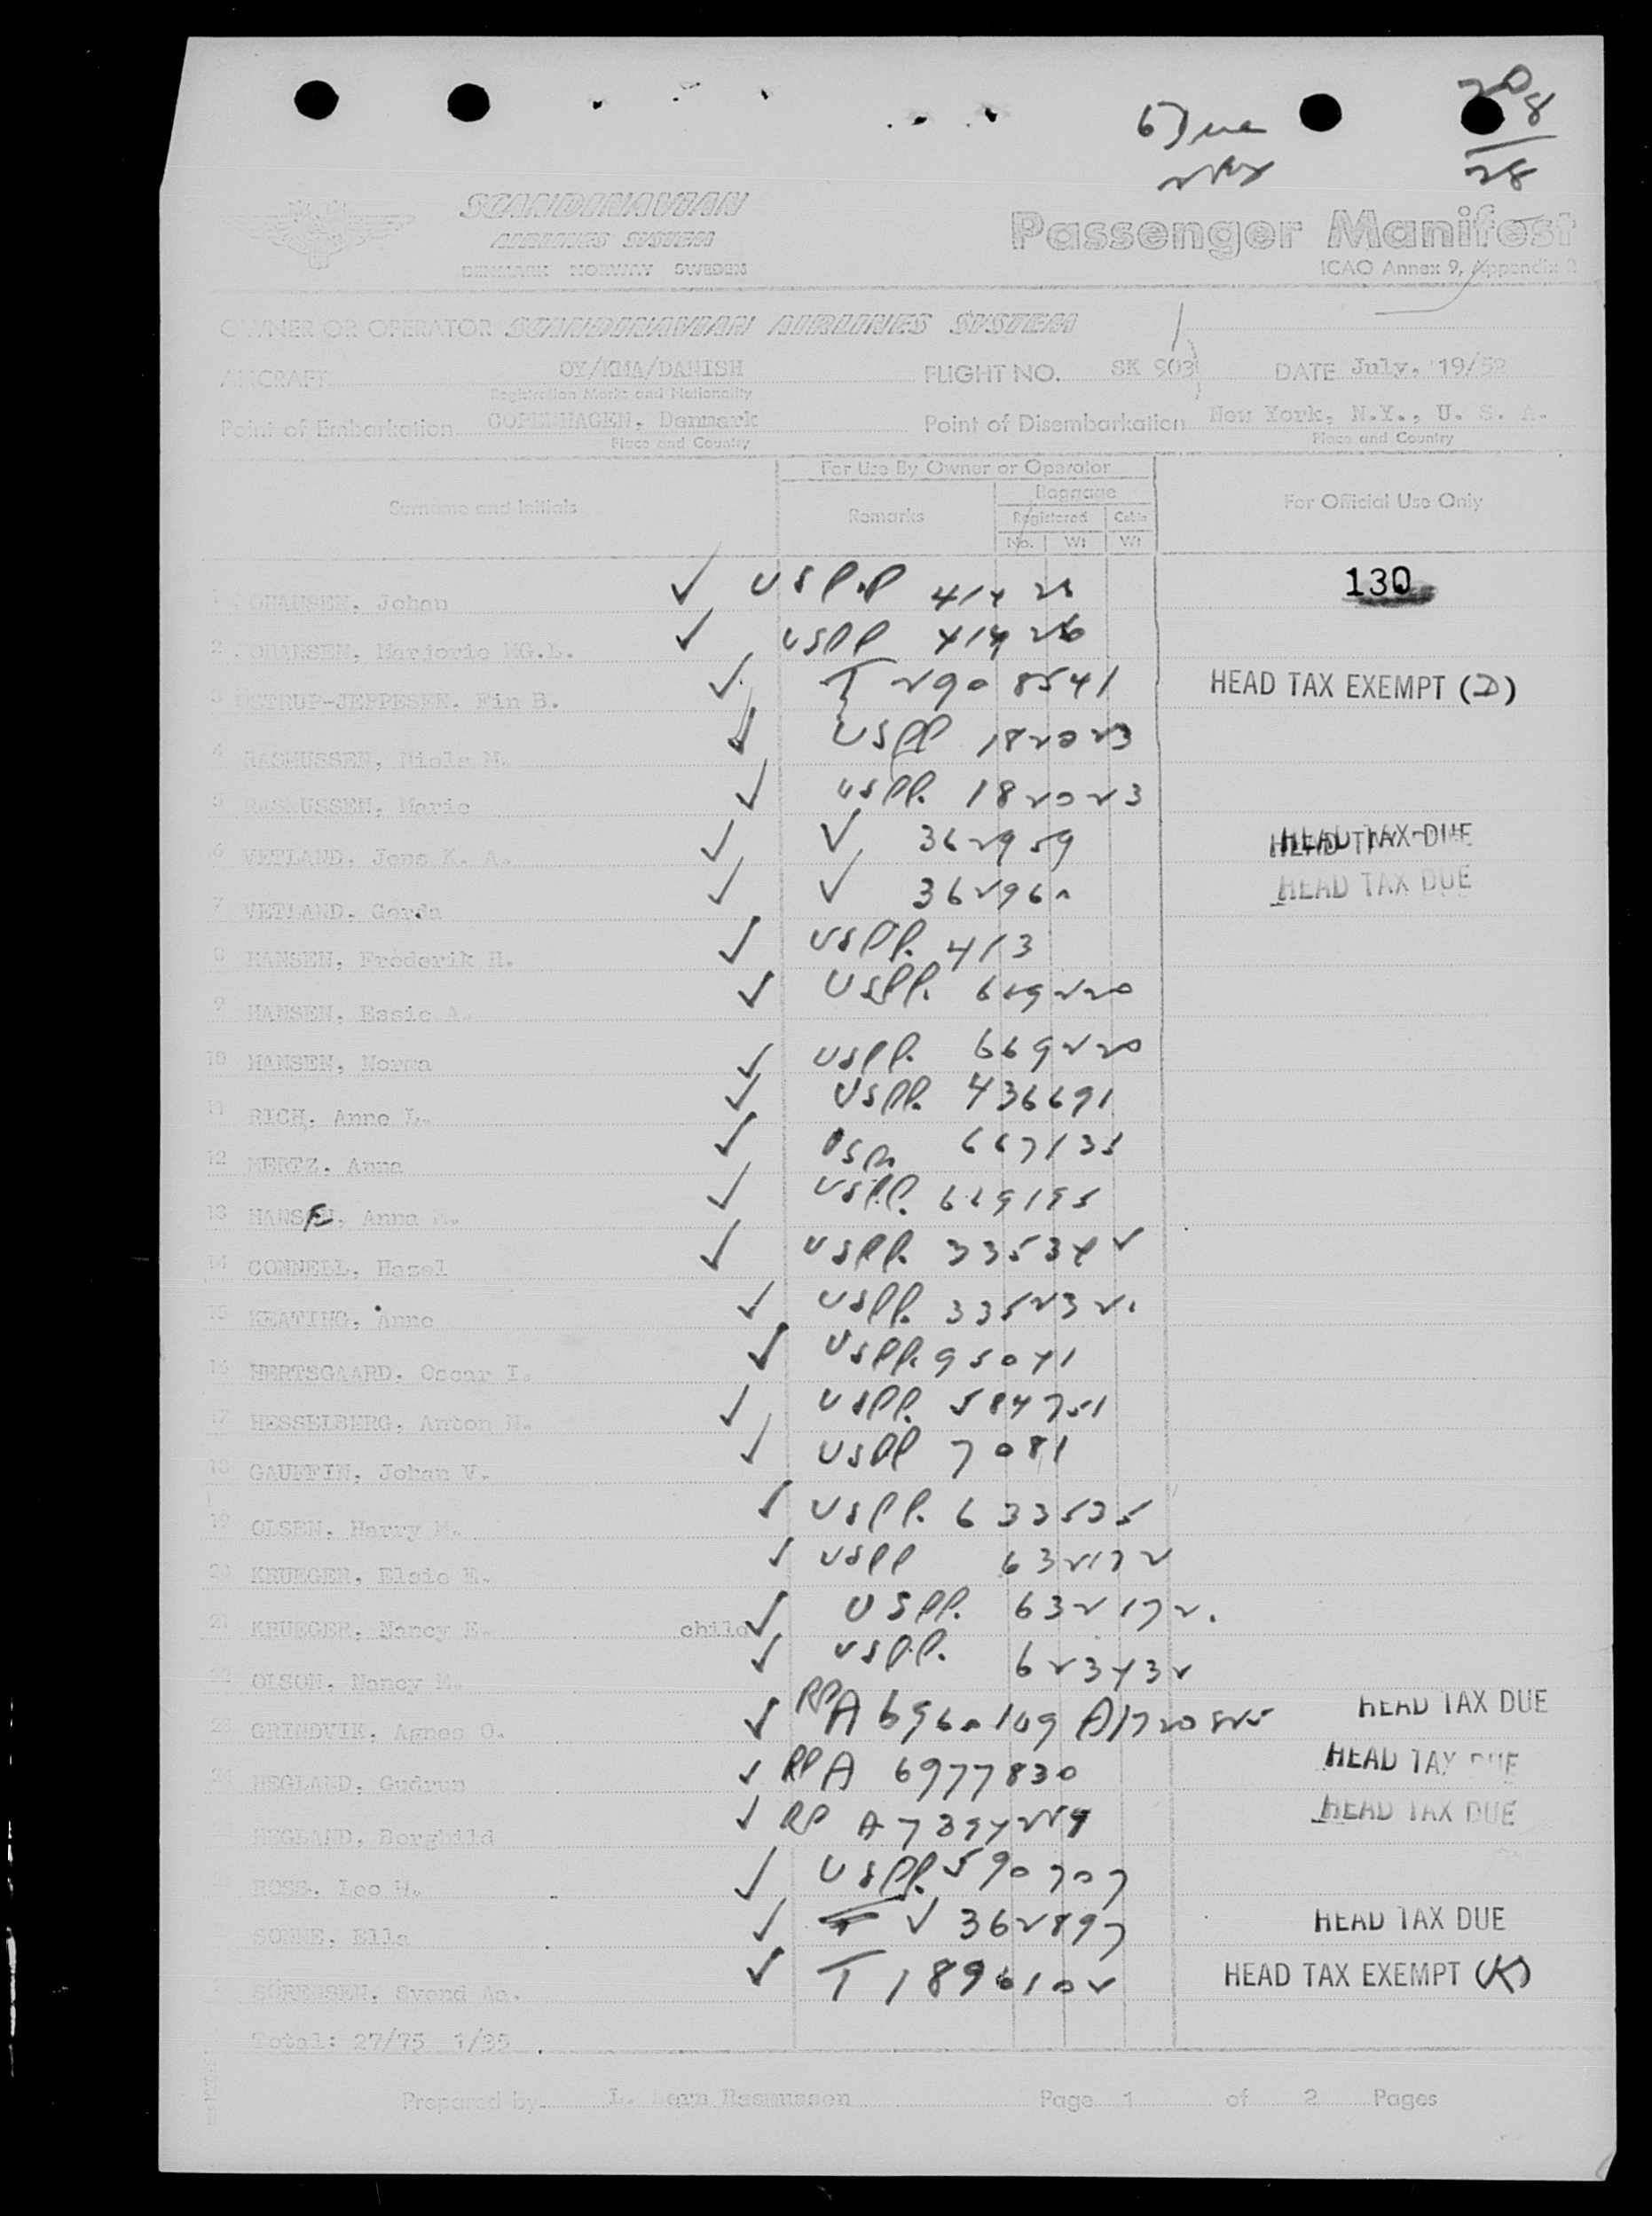 208
6 Due
28
SCANDINAVIAN
AIRLINES SYSTEM
DENMARK NORWAY SWEDEN
Passenger Manifest
ICAO Annex 9, Appendix
OWNER OR OPERATOR SCANDINAVIAN AIRLINES SYSTEM
AIRCRAFT OY/KMA/DANISH FLIGHT NO. SK 903 DATE July, 19/52
Registration Marks and Nationality
Point of Embarkation COPENHAGEN, Denmark Point of Disembarkation New York, N.Y., U. S. A.
Place and Country Place and Country
For Use By Owner or Operator
Surname and Initials Remarks Baggage For Official Use Only
Registered Cabin
No. Wt Wt
1 JOHANSEN, Johan ✓ USPP 41425 130
2 JOHANSEN, Marjorie MG.L. ✓ USPP 41426
3 USTRUP-JEPPESEN, Fin B. ✓ T 2908541 HEAD TAX EXEMPT (D)
4 RASMUSSEN, Niels M. ✓ USPP 182023
5 RASMUSSEN, Marie ✓ USPP. 182023
6 VETLAND, Jens K. A. ✓ V 362959 HEAD TAX DUE
7 VETLAND, Gerda ✓ V 362960 HEAD TAX DUE
8 HANSEN, Frederik H. ✓ USPP. 413
9 HANSEN, Essie A. ✓ USPP. 669220
10 HANSEN, Norma ✓ USPP. 669220
11 RICH, Anne L. ✓ USPP. 436691
12 MERTZ, Anna ✓ USPP 667135
13 HANSEN, Anna M. ✓ USPP. 669195
14 CONNELL, Hazel ✓ USPP. 335342
15 KEATING, Anne ✓ USPP. 335232
16 HERTSGAARD, Oscar I. ✓ USPP. 95041
17 HESSELBERG, Anton N. ✓ USPP. 584751
18 GAUFFIN, Johan V. ✓ USPP 7081
19 OLSEN, Harry M. ✓ USPP. 633535
20 KRUEGER, Elsie E. ✓ USPP 632172
21 KRUEGER, Nancy E. child ✓ USPP. 632172.
22 OLSON, Nancy M. ✓ USPP. 623432
23 GRINDVIK, Agnes O. ✓ RP A6960169 HEAD TAX DUE
24 HEGLAND, Gudrun ✓ RP A 6977830 HEAD TAX DUE
HEGLAND, Borghild ✓ RP A7394224 HEAD TAX DUE
ROSS, Leo H. ✓ USPP. 590707
SONNE, Ella ✓ V 362897 HEAD TAX DUE
SÖRENSEN, Svend Aa. ✓ T 1896102 HEAD TAX EXEMPT (K)
Total: 27/75 1/35
Prepared by L. Rasmussen Page 1 of 2 Pages